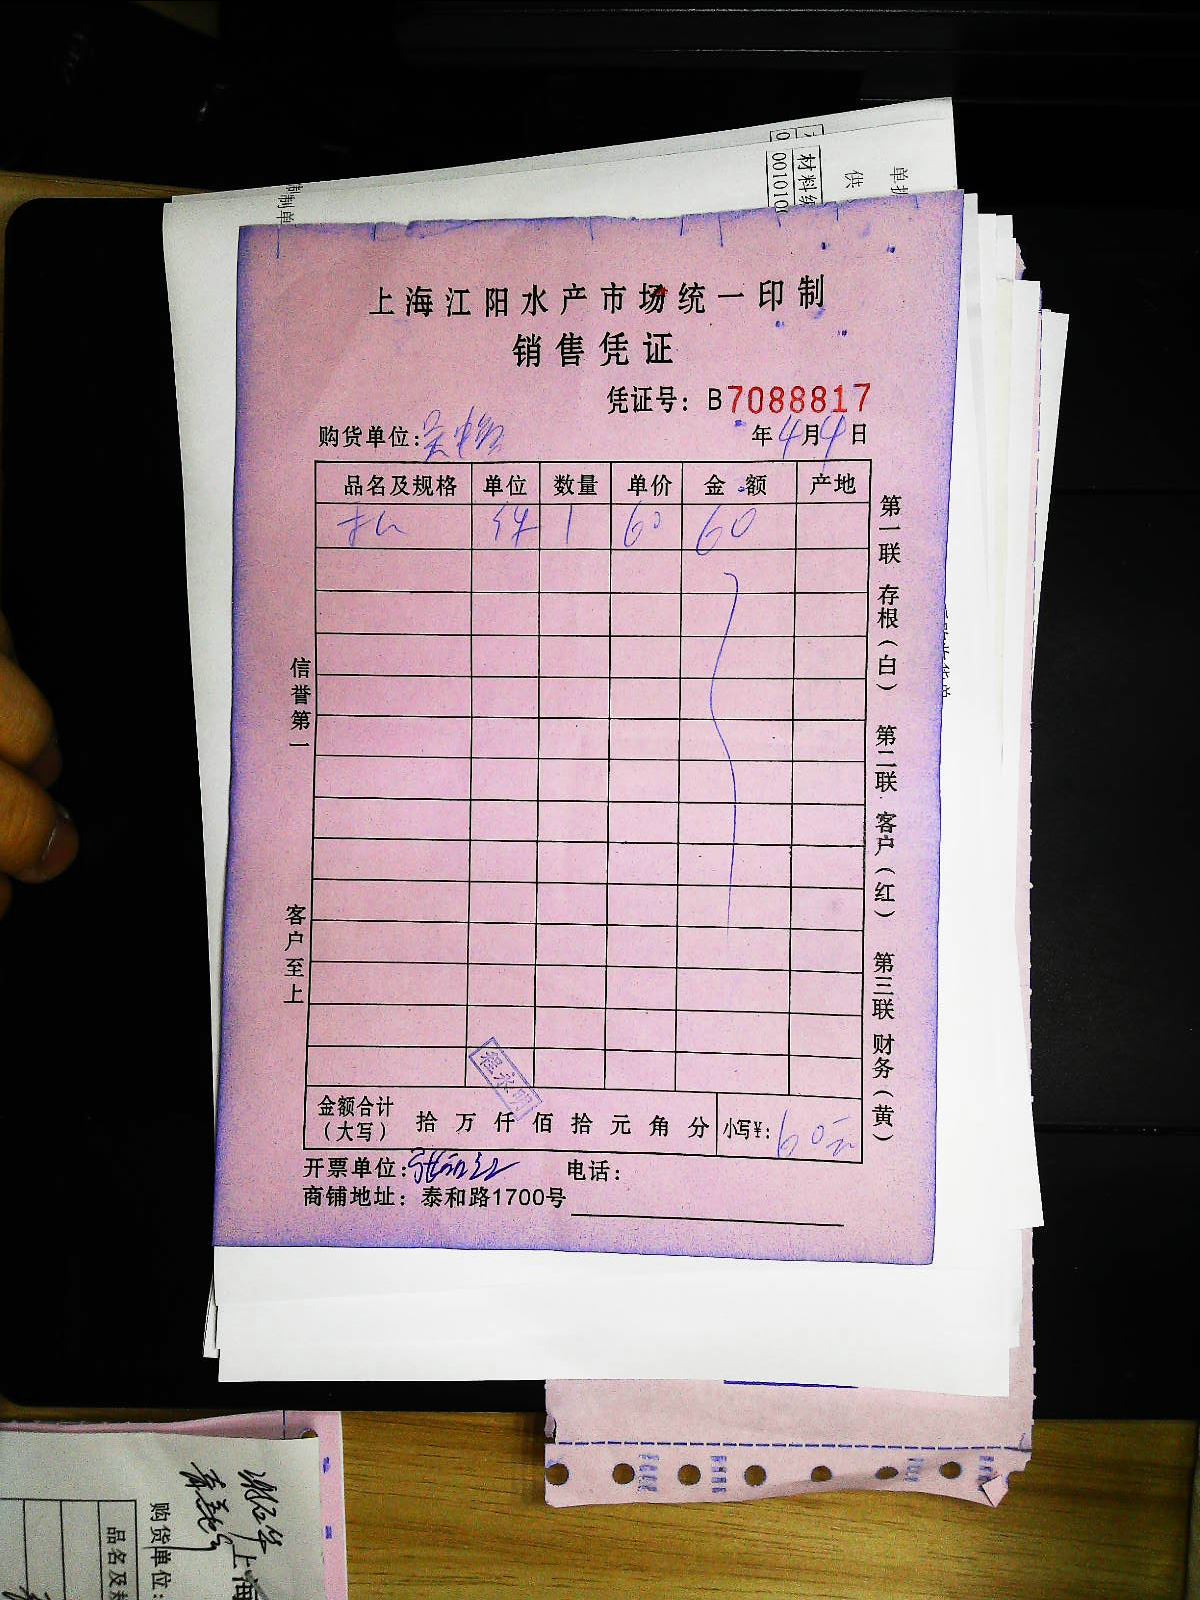 单据
供
材料编
001010
制单
上海江阳水产市场统一印制
销售凭证
凭证号：B7088817
购货单位：
年4月4日
品名及规格 单位 数量 单价 金额 产地
件 1 60 60
信誉第一
客户至上
第一联 存根（白） 第二联 客户（红） 第三联 财务（黄）
程永明
金额合计（大写） 拾 万 仟 佰 拾 元 角 分 小写¥：60元
开票单位： 电话：
商铺地址：泰和路1700号
上海
购货单位：
品名及规